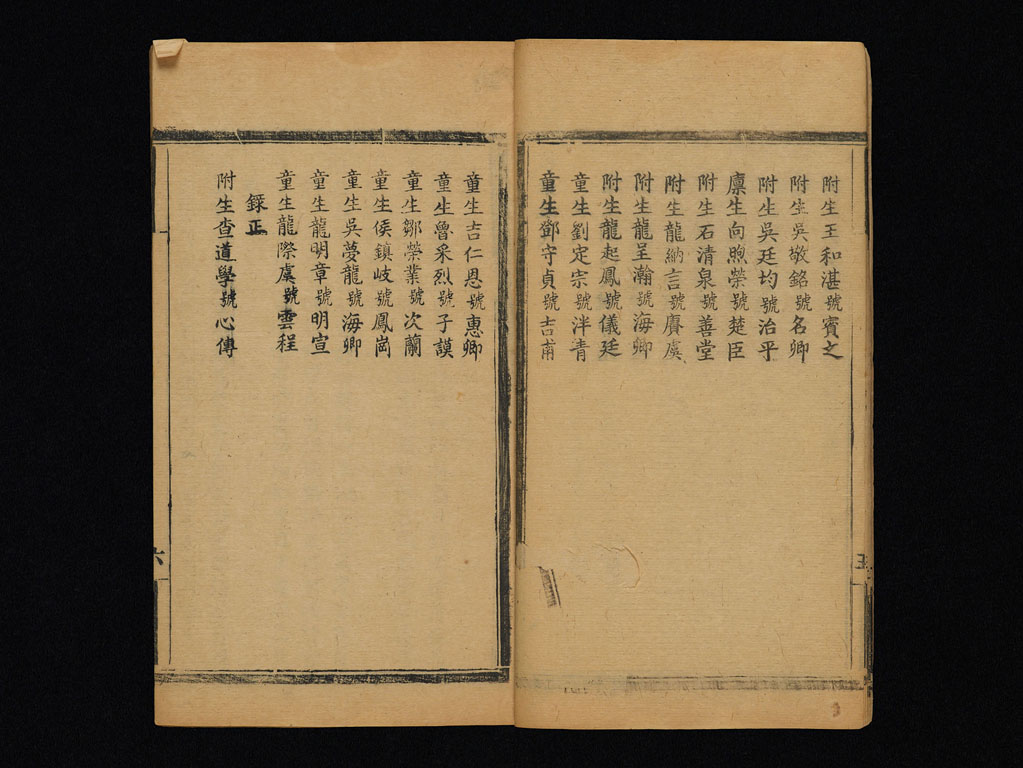 附生王和湛號賓之
附生吳敬銘號名卿
附生吳廷均號治平
廩生向煦榮號楚臣
附生石清泉號善堂
附生龍納言號賡虞
附生龍呈瀚號海卿
附生龍起鳳號儀廷
童生劉定宗號泮青
童生鄧守貞號吉甫
五
童生吉仁恩號惠卿
童生魯采烈號子謨
童生鄒榮業號次蘭
童生侯鎮岐號鳳崗
童生吳夢龍號海卿
童生龍明章號明宣
童生龍際虞號雲程
錄正
附生查道學號心傳
六